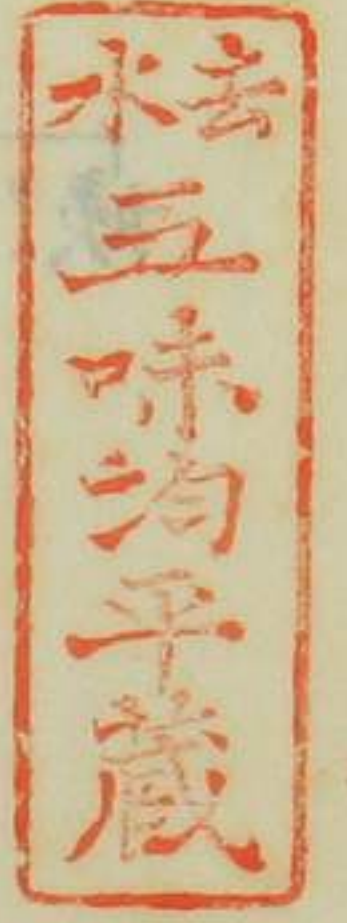 玄水
五味均平蔵